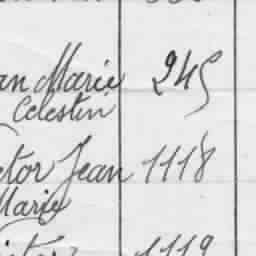 an Marie 245
Celestin
ctor Jean 1118
Marie
1119